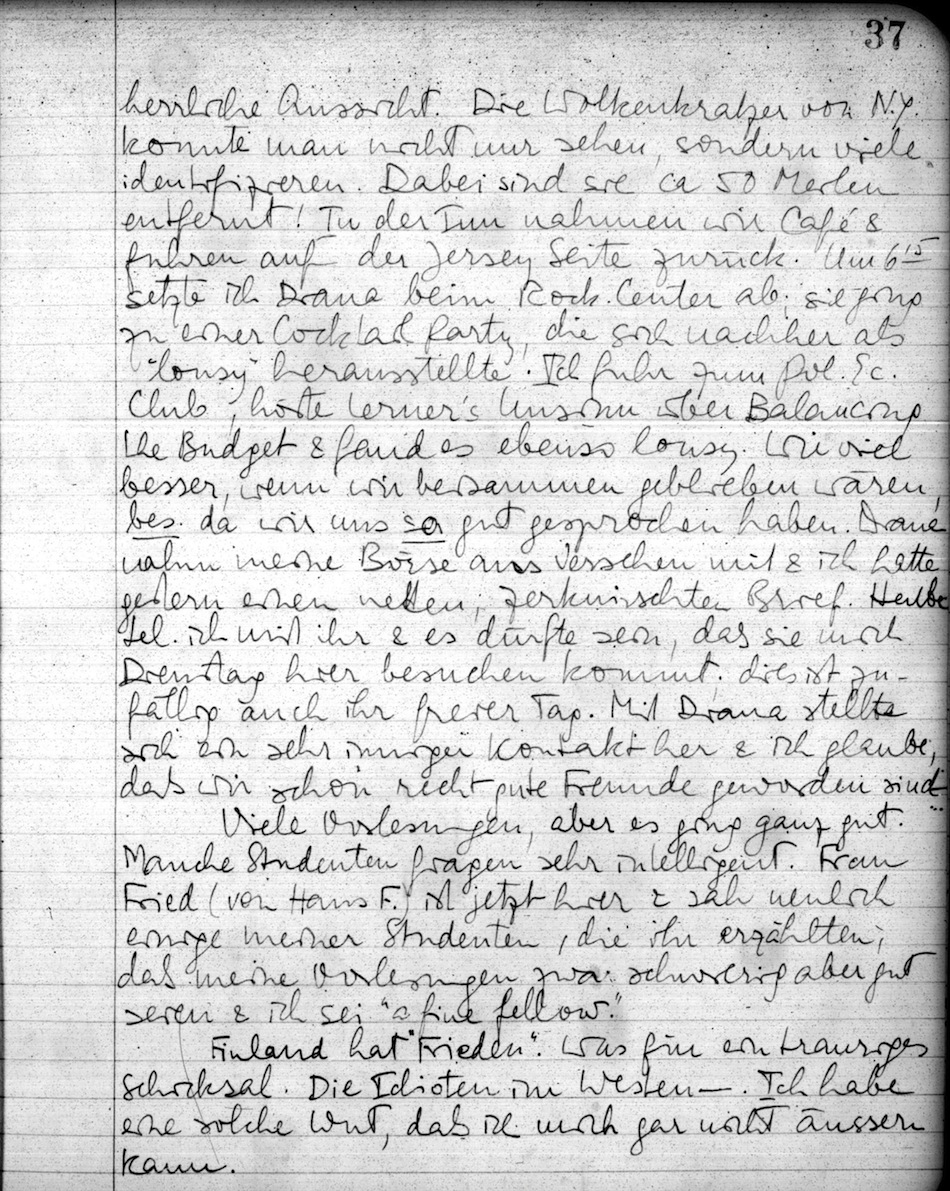 37
herrliche Aussicht. Die Wolkenkratzer von N.Y.
konnte man nicht nur sehen, sondern viele
identifizieren. Dabei sind sie ca 50 Meilen
entfernt! In der Inn nahmen wir Café &
fuhren auf der Jersey Seite zurück. Um 6¹⁵
setzte ich Diana beim Rock. Center ab; sie ging
zu einer Cocktail Party, die sich nachher als
"lousy" herausstellte. Ich fuhr zum Pol. Ec.
Club, hörte Lerner's Unsinn über Balancing
the Budget & fand es ebenso lousy. Wie viel
besser, wenn wir beisammen geblieben wären,
bes. da wir uns so gut gesprochen haben. Diana
nahm meine Börse aus Versehen mit & ich hatte
gestern einen netten, zerknirschten Brief. Heute
tel. ich mit ihr & es dürfte sein, das sie mich
Dienstag hier besuchen kommt; dies ist zu-
fällig auch ihr freier Tag. Mit Diana stellte
sich ein sehr inniger Kontakt her & ich glaube,
dass wir schon recht gute Freunde geworden sind
Viele Vorlesungen, aber es ging ganz gut.
Manche Studenten fragen sehr intelligent. Frau
Fried (von Hans F.) ist jetzt hier & sah neulich
einige meiner Studenten, die ihr erzählten,
das meine Vorlesungen zwar schwierig aber gut
seien & ich sei "a fine fellow".
Finland hat "Frieden". Was für ein trauriges
Schicksal. Die Idioten im Westen —. Ich habe
eine solche Wut, das ich mich gar nicht äussern
kann.